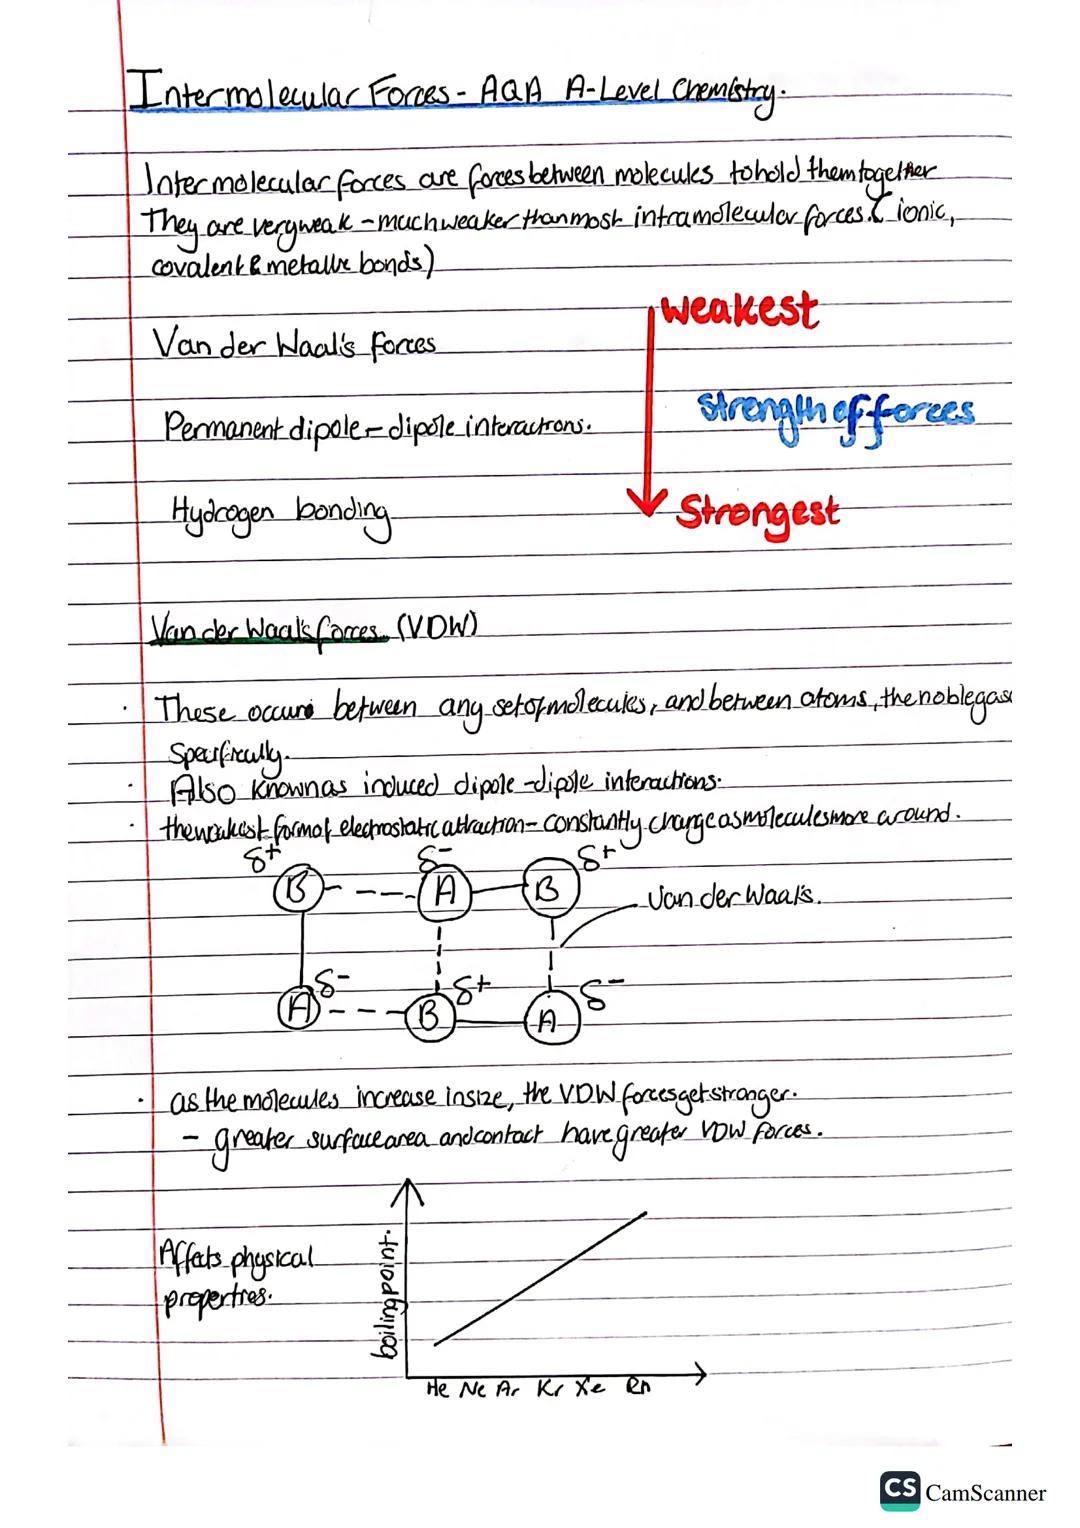 Intermolecular Forces - AQA A-Level Chemistry.
Intermolecular forces are forces between molecules to hold them together
They are very weak - much weaker than most intramolecular forces. (ionic,
covalent & metallic bonds)
weakest
Van der Waal's forces
strength of forces
Permanent dipole - dipole interactions.
Hydrogen bonding
Strongest
Van der Waal's forces (VDW)
· These occurs between any set of molecules, and between atoms, the noble gase
Specifically.
· Also known as induced dipole - dipole interactions.
· the weakest form of electrostatic attraction - constantly change as molecules move around.
δ+ δ- δ+
B A B
Van der Waals.
δ- δ+ δ-
A B A
· as the molecules increase in size, the VDW forces get stronger.
- greater surface area and contact have greater VDW forces.
Affects physical
properties.
boiling point.
He Ne Ar Kr Xe Rn
CS CamScanner